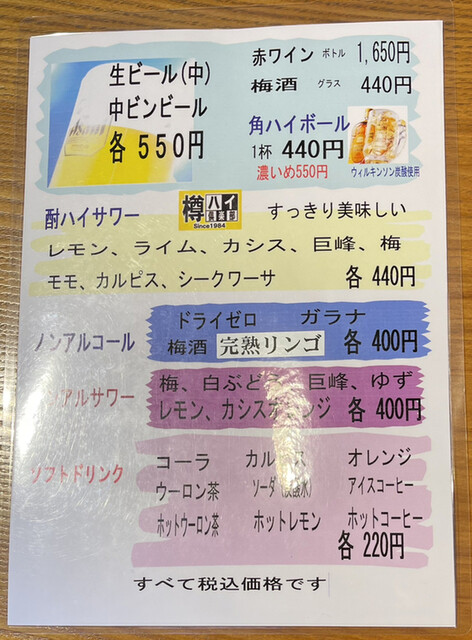 生ビール(中)
中ビンビール
各 550円
Asahi
赤ワイン ボトル 1,650円
梅酒 グラス 440円
角ハイボール
1杯 440円
濃いめ550円
ウィルキンソン炭酸使用
酎ハイサワー
樽ハイ倶楽部
Since1984
すっきり美味しい
レモン、ライム、カシス、巨峰、梅
モモ、カルピス、シークワーサ 各 440円
ノンアルコール
ドライゼロ ガラナ
梅酒 完熟リンゴ 各 400円
アルサワー
梅、白ぶどう、巨峰、ゆず
レモン、カシスオレンジ 各 400円
ソフトドリンク
コーラ カルピス オレンジ
ウーロン茶 ソーダ(炭酸水) アイスコーヒー
ホットウーロン茶 ホットレモン ホットコーヒー
各 220円
すべて税込価格です